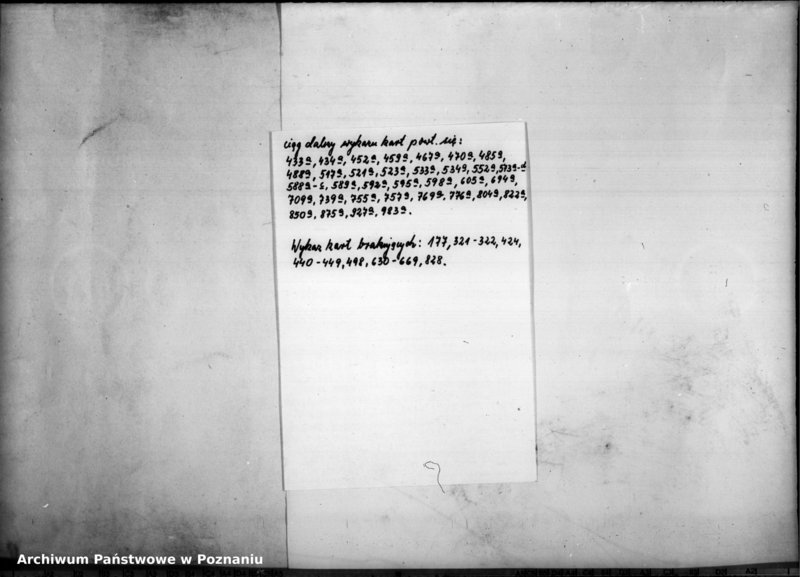 ciąg dalszy wykazu kart powt. się:
433a, 434a, 452a, 459a, 467a, 470a, 485a,
488a, 517a, 521a, 523a, 533a, 534a, 552a, 573a-d
588a-c, 589a, 592a, 595a, 598a, 605a, 694a,
709a, 739a, 755a, 757a, 769a, 776a, 804a, 822a,
850a, 875a, 927a, 983a.
Wykaz kart brakujących: 177, 321-322, 424,
440-449, 498, 630-669, 828.
Archiwum Państwowe w Poznaniu